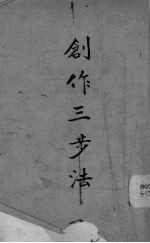 創作三步法